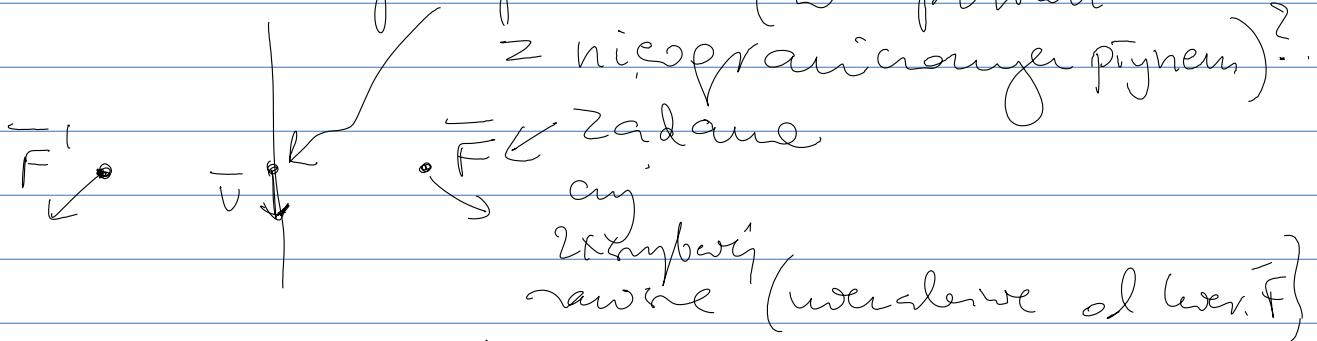 z nieograniczonym płynem)?
F' v F zadana
czy
2x szybciej
zawsze (niezależnie od kier. F)